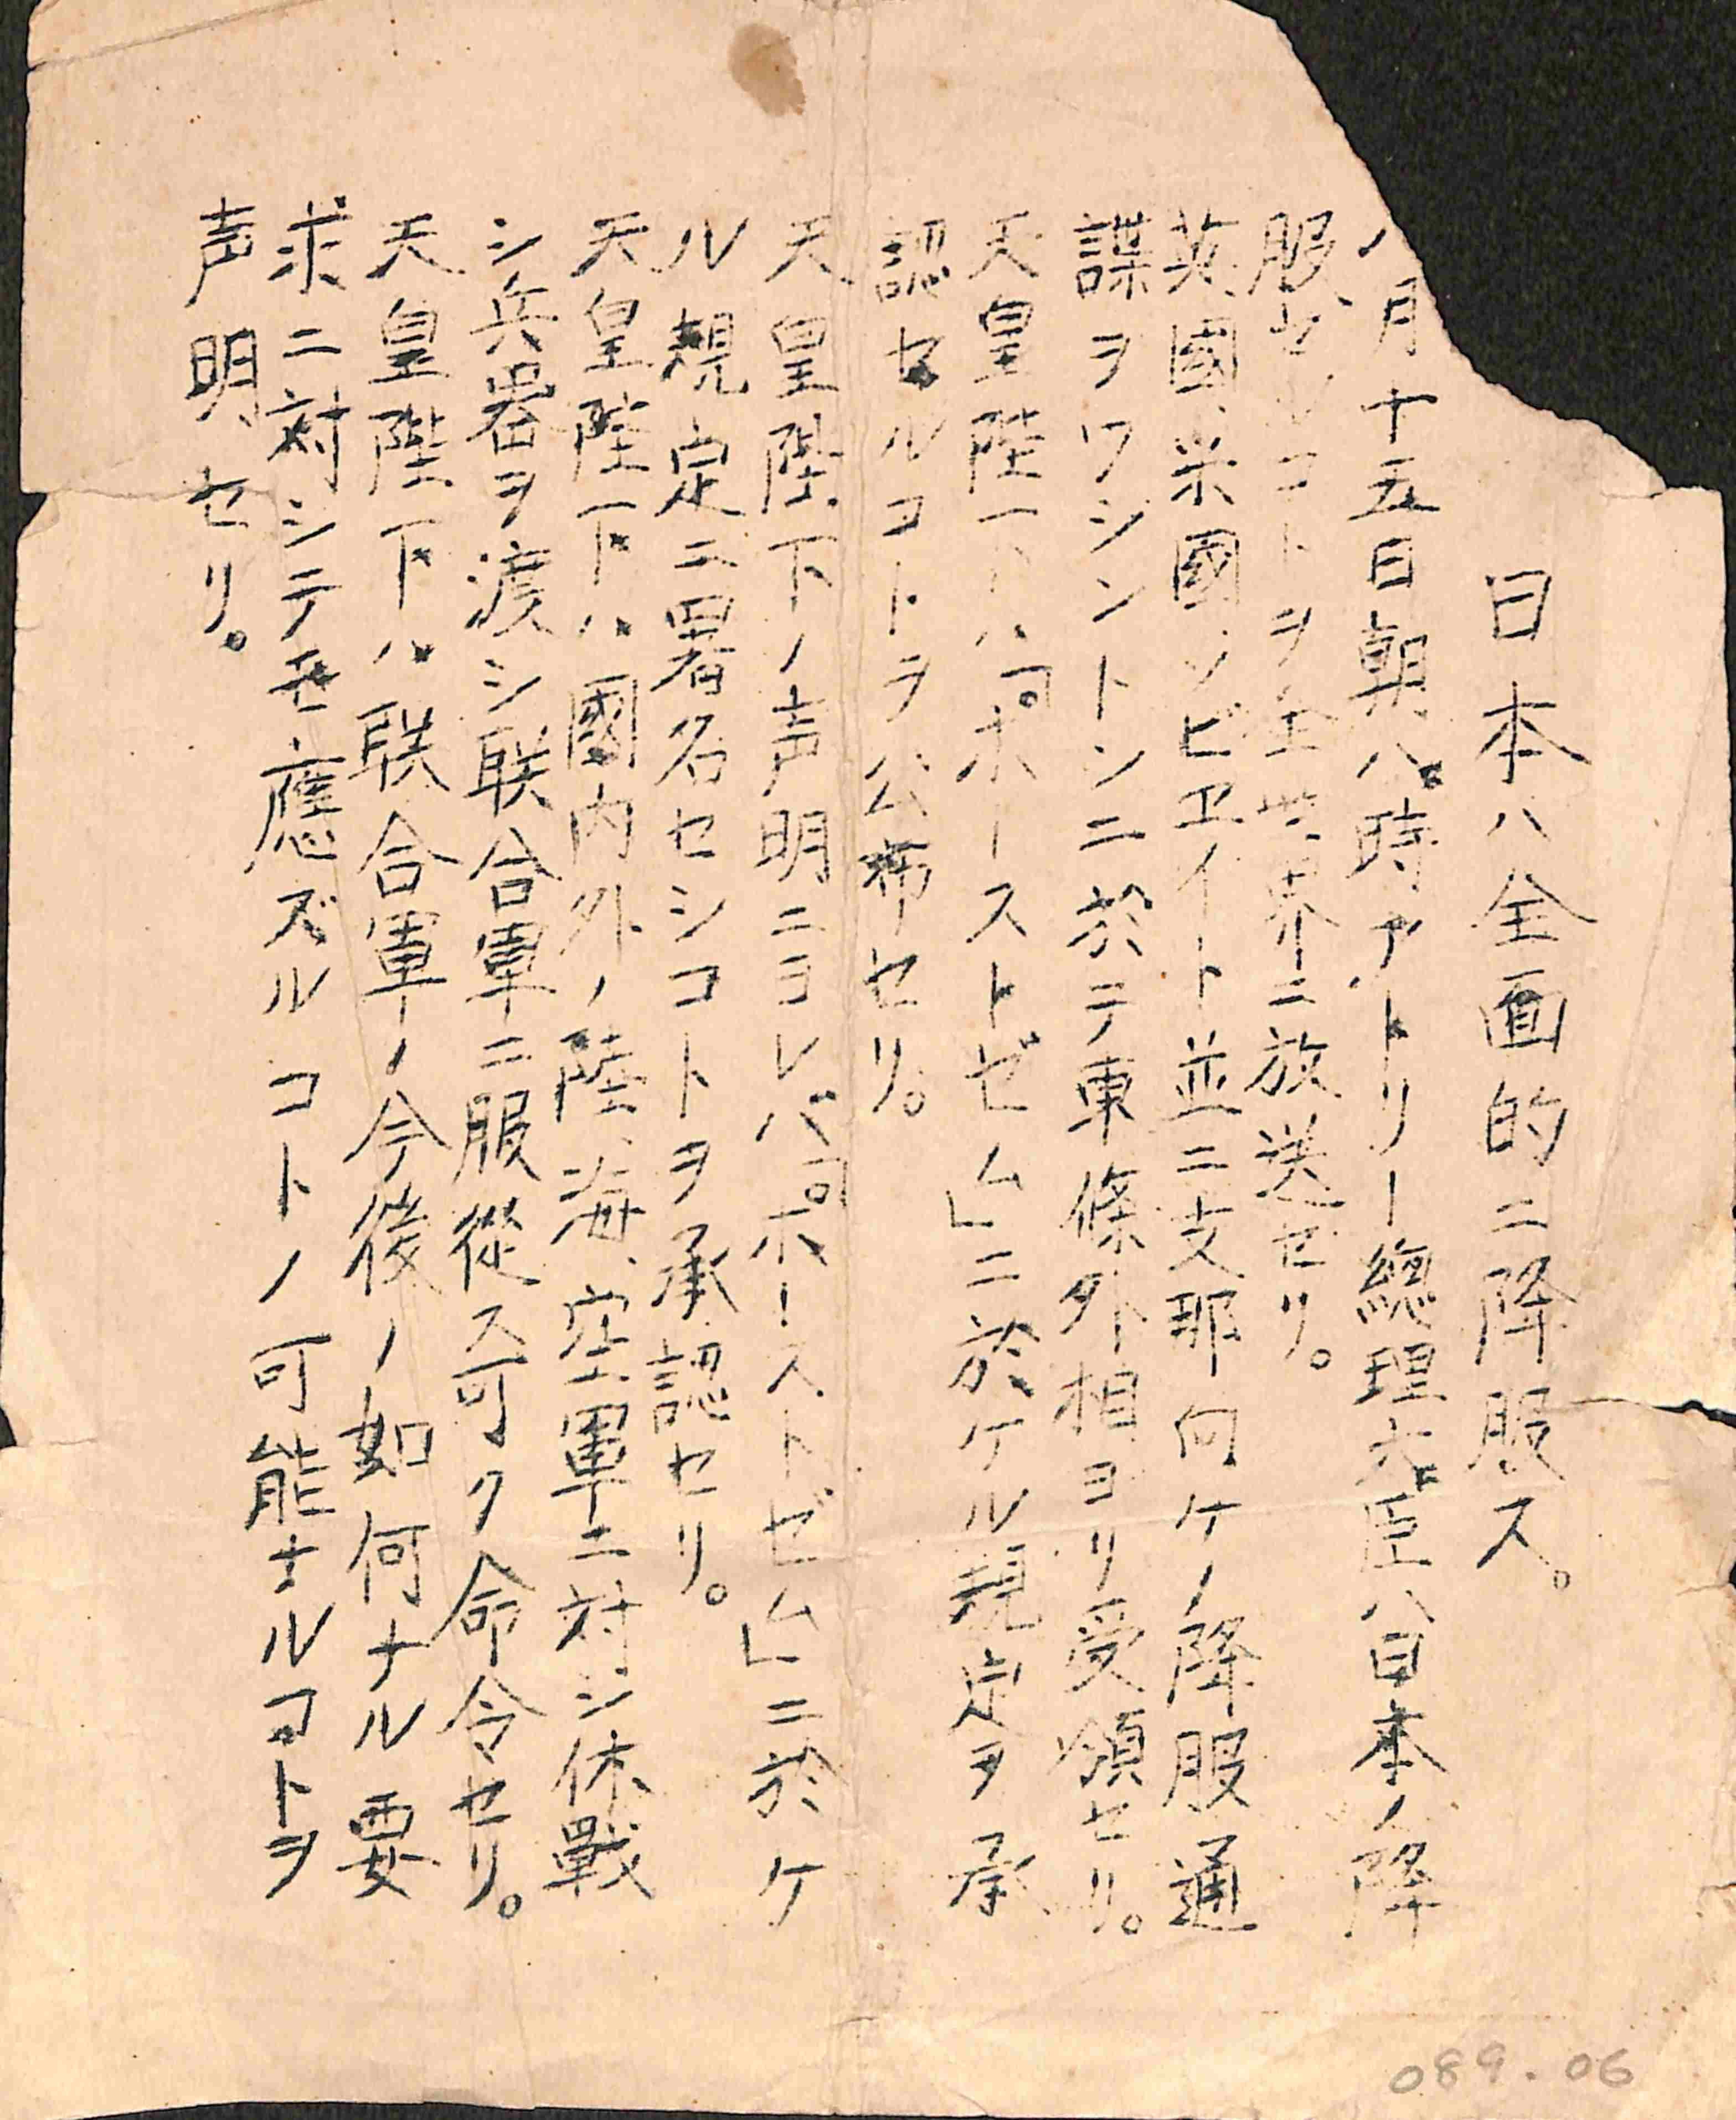 日本ハ全面的ニ降服ス。
八月十五日朝八時アトリー總理大臣ハ日本ノ降
服セシコトヲ全世界ニ放送セリ。
英國、米國、ソビエイト並ニ支那向ケノ降服通
諜ヲワシントンニ於テ東條外相ヨリ受領セリ。
天皇陛下ハ「ポーストゼム」ニ於ケル規定ヲ承
認セルコトヲ公布セリ。
天皇陛下ノ声明ニヨレバ「ポーストゼム」ニ於ケ
ル規定ニ署名セシコトヲ承認セリ。
天皇陛下ハ國内外ノ陸、海、空軍ニ対シ休戰
シ兵器ヲ渡シ联合軍ニ服從ス可ク命令セリ。
天皇陛下ハ联合軍ノ今後ノ如何ナル要
求ニ対シテモ應ズルコトノ可能ナルコトヲ
声明セリ。
089.06